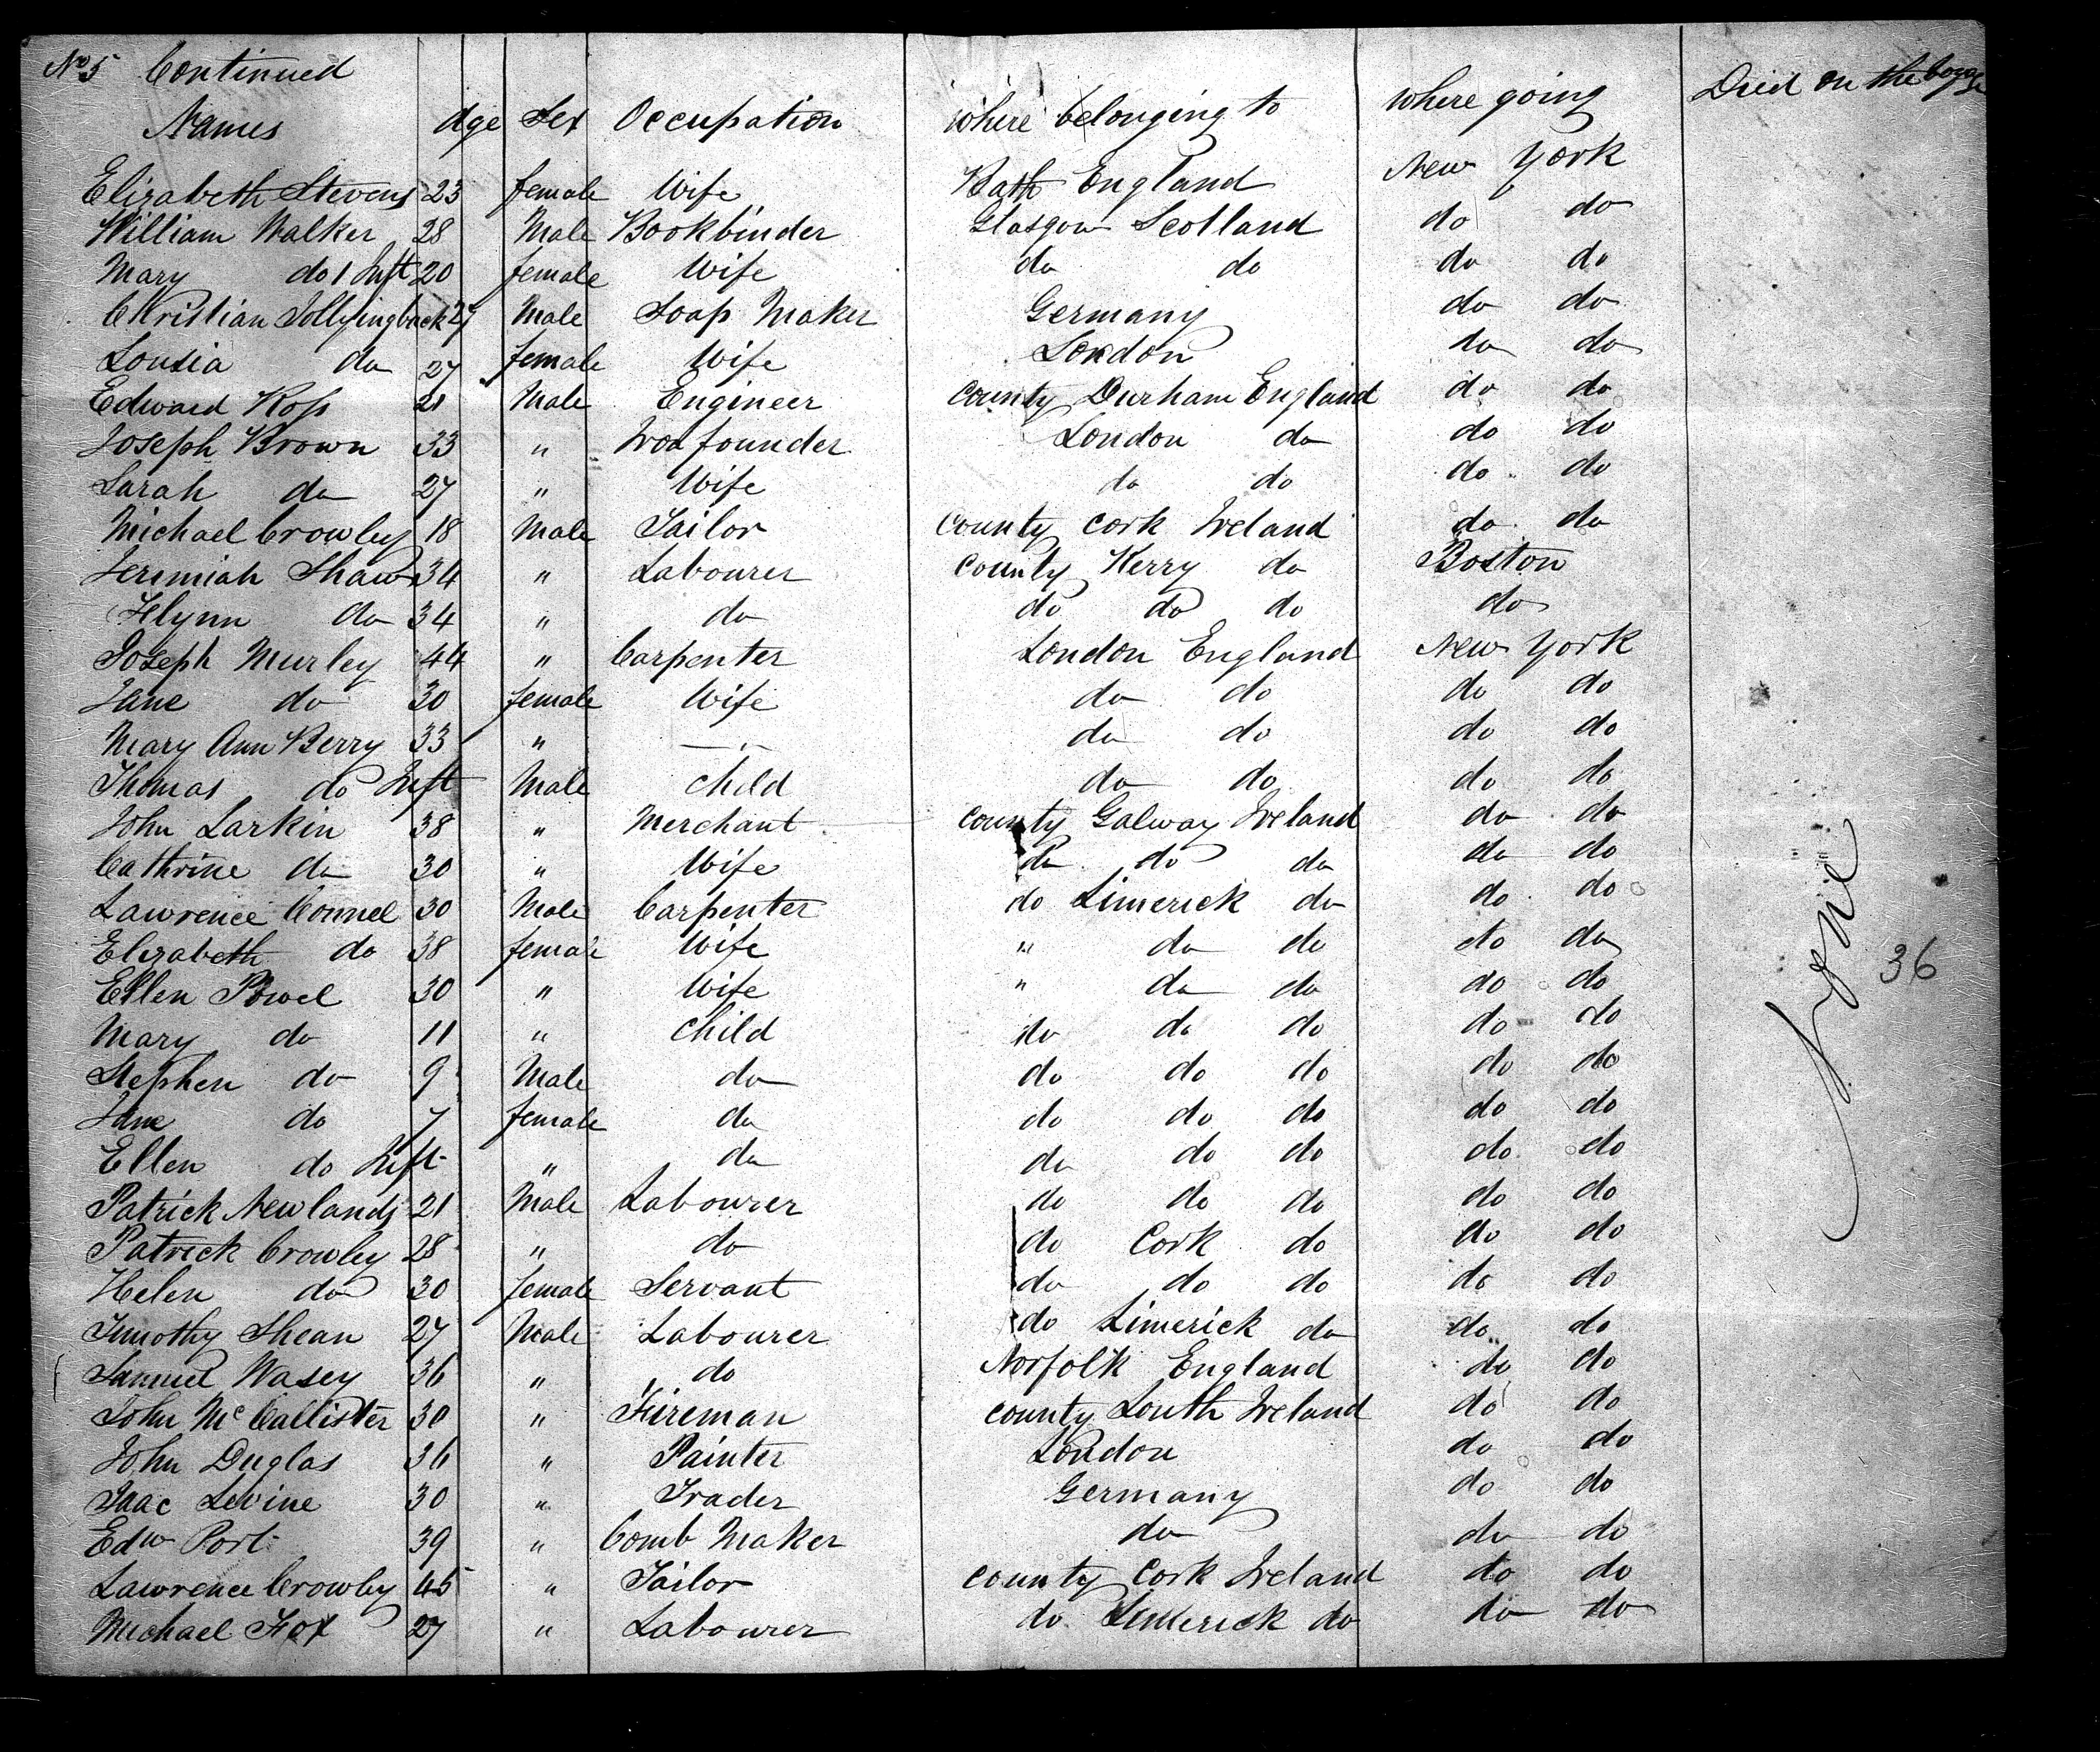 No 5 Continued
Names age Sex Occupation where belonging to where going Died on the Voyage
Elizabeth Stevens 23 female Wife Bath England New York
William Walker 28 Male Bookbinder Glasgow Scotland do do
Mary do 1 Inft 20 female Wife do do do do
Christian 27 Male Soap Maker Germany do do
Lousia do 27 female Wife London do do
Edward Ross 21 Male Engineer county Durham England do do
Joseph Brown 33 " Iron founder London do do do
Sarah do 27 " Wife do do do do
Michael Crowley 18 Male Tailor County Cork Ireland do do
Jeremiah Shaw 34 " Labourer County Kerry do Boston
Flynn do 34 " do do do do do
Joseph Murley 44 " Carpenter London England New York
Jane do 30 female Wife do do do do
Mary Ann Berry 33 " — do do do do
Thomas do Inft Male child do do do do
John Larkin 38 " Merchant county Galway Ireland do do
Cathrine do 30 " Wife do do do do do
Lawrence Connel 30 Male Carpenter do Limerick do do do
Elizabeth do 38 female Wife " do do do do
Ellen Powel 30 " Wife " do do do do
Mary do 11 " Child do do do do do
Stephen do 9 Male do do do do do do
Jane do 7 female do do do do do do
Ellen do Inft " do do do do do do
Patrick Newlands 21 Male Labourer do do do do do
Patrick Crowley 28 " do do Cork do do do
Helen do 30 female Servant do do do do do
Timothy Shean 27 Male Labourer do Limerick do do do
Samuel Wasey 36 " do Norfolk England do do
John McCallister 30 " Fireman county Louth Ireland do do
John Duglas 36 " Painter London do do
Isac Levine 30 " Trader Germany do do
Edw Port 39 " Comb Maker do do do
Lawrence Crowley 45 " Tailor county Cork Ireland do do
Michael Fox 27 " Labourer do Limerick do do do
None
36